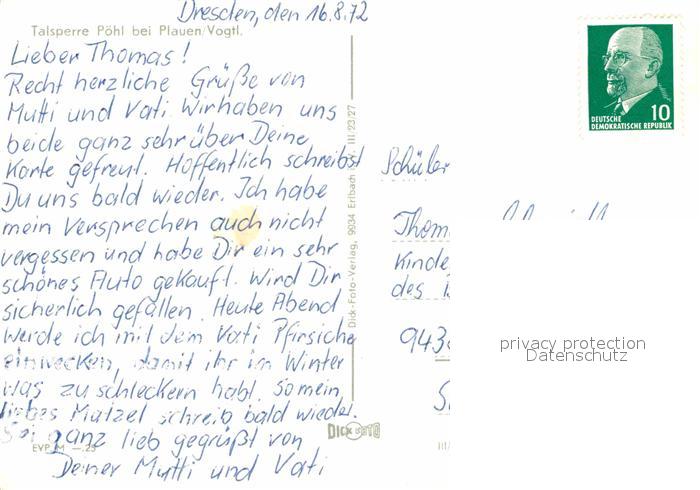 Dresden, den 16.8.72
Talsperre Pöhl bei Plauen/Vogtl.
Lieber Thomas!
Recht herzliche Grüße von
Mutti und Vati. Wir haben uns
beide ganz sehr über Deine
Karte gefreut. Hoffentlich schreibst
Du uns bald wieder. Ich habe
mein Versprechen auch nicht
vergessen und habe Dir ein sehr
schönes Auto gekauft. Wird Dir
sicherlich gefallen. Heute Abend
werde ich mit dem Vati Pfirsiche
einwecken, damit ihr im Winter
was zu schleckern habt. So mein
liebes Matzel schreib bald wieder.
Sei ganz lieb gegrüßt von
Deiner Mutti und Vati
EVP M —.25
Dick-Foto-Verlag, 9934 Erlbach III/23/27
DICK FOTO
10
DEUTSCHE
DEMOKRATISCHE REPUBLIK
Schüler
Thom
Kinde
des
943
privacy protection
Datenschutz
III/